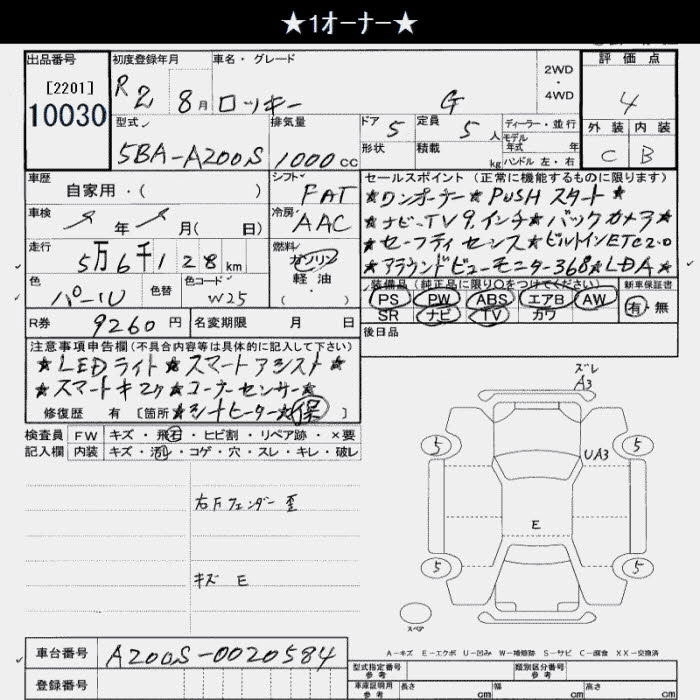 ★1オーナー★
出品番号
[2201]
10030
初度登録年月
R2 8月
車名・グレード
ロッキー G
2WD
・
4WD
評価点
4
外装 内装
C B
型式
5BA-A200S
排気量
1000cc
ドア 5
形状
定員 5人
積載 kg
ディーラー・並行
モデル年式 年
ハンドル 左・右
車歴
自家用・( )
シフト
FAT
車検
年 月( 日)
冷房
AAC
走行
5万6千128km
燃料
ガソリン
軽油
( )
色
パール
色替
色コード
W25
R券 9260円
名変期限 月 日
セールスポイント(正常に機能するものに限ります)
★ワンオーナー★PUSHスタート★
★ナビ・TV9インチ★バックカメラ★
★セーフティセンス★ビルトインETC2.0
★アラウンドビューモニター368★LDA★
装備品(純正品に限り○をつけてください)
PS PW ABS エアB AW
SR ナビ TV カワ
新車保証書
有・無
後日品
注意事項申告欄(不具合内容等は具体的に記入して下さい)
★LEDライト★スマートアシスト★
★スマートキー2ケ★コーナーセンサー★
修復歴 有 [箇所★シートヒーター★保 ]
検査員記入欄
FW キズ・飛石・ヒビ割・リペア跡・×要
内装 キズ・汚レ・コゲ・穴・スレ・キレ・破レ
右Fフェンダー歪
キズ E
ズレ
A3
5
5
UA3
E
5
5
スペア
A-キズ E-エクボ U-凹み W-補修跡 S-サビ C-腐食 XX-交換済
車台番号 A200S-0020584
登録番号
型式指定番号
参考
類別区分番号
参考
車庫証明用
参考
長さ cm
幅 cm
高さ cm